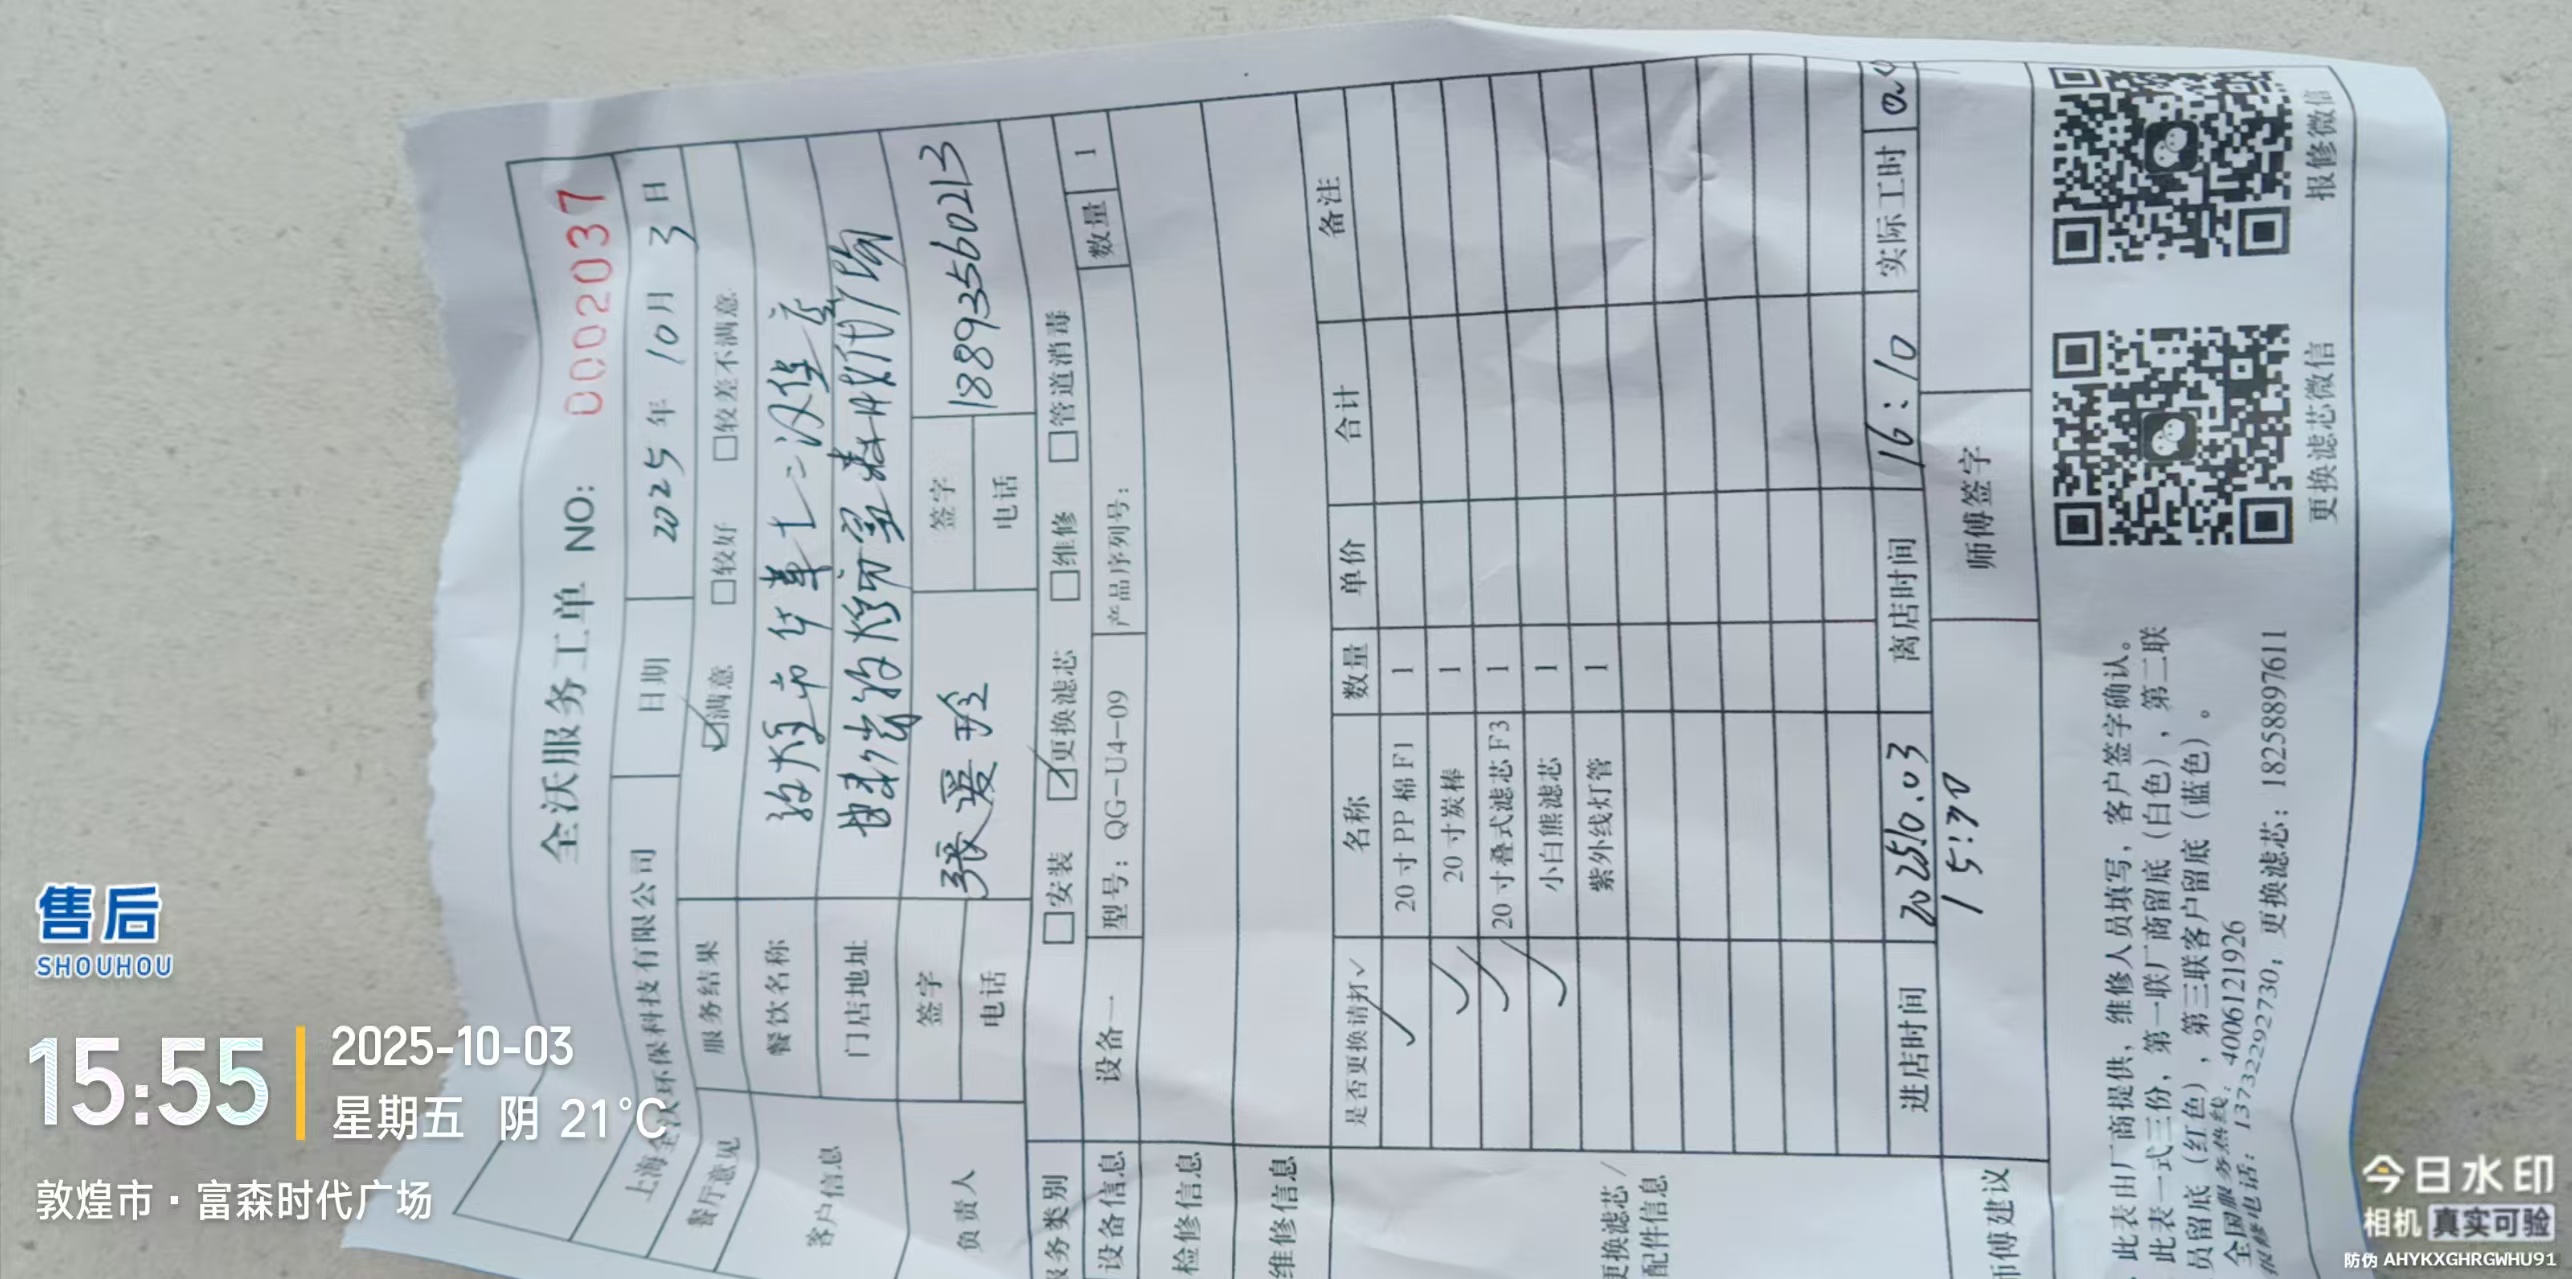 全沃服务工单 NO: 0002037
上海全沃环保科技有限公司 日期 2025 年 10 月 3 日
餐厅意见 服务结果 ☑满意 □较好 □较差不满意
客户信息 餐饮名称 敦煌市华莱士二汉堡店
门店地址 甘肃省敦煌市富森时代广场
负责人 签字 张爱玲 签字 18893560213
电话 电话
服务类别 □安装 ☑更换滤芯 □维修 □管道消毒
设备信息 设备一 型号：QG-U4-09 产品序列号： 数量 1
检修信息
维修信息
更换滤芯/
配件信息
是否更换请打✓ 名称 数量 单价 合计 备注
✓ 20 寸 PP 棉 F1 1
✓ 20 寸炭棒 1
✓ 20 寸叠式滤芯 F3 1
✓ 小白熊滤芯 1
紫外线灯管 1
进店时间 202510.03 离店时间 16:10 实际工时
师傅建议 15:30 师傅签字
此表由厂商提供，维修人员填写，客户签字确认。
此表一式三份，第一联厂商留底（白色），第二联
员留底（红色），第三联客户留底（蓝色）。
全国服务热线：4006121926
报修电话：13732292730；更换滤芯：18258897611
更换滤芯微信 报修微信
售后
SHOUHOU
15:55
2025-10-03
星期五 阴 21°C
敦煌市·富森时代广场
今日水印
相机 真实可验
防伪 AHYKXGHRGWHU91